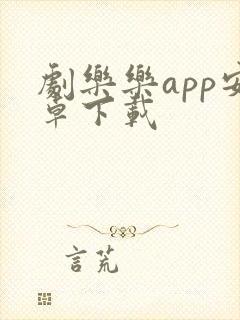 劇樂樂app安
卓下載
言荒